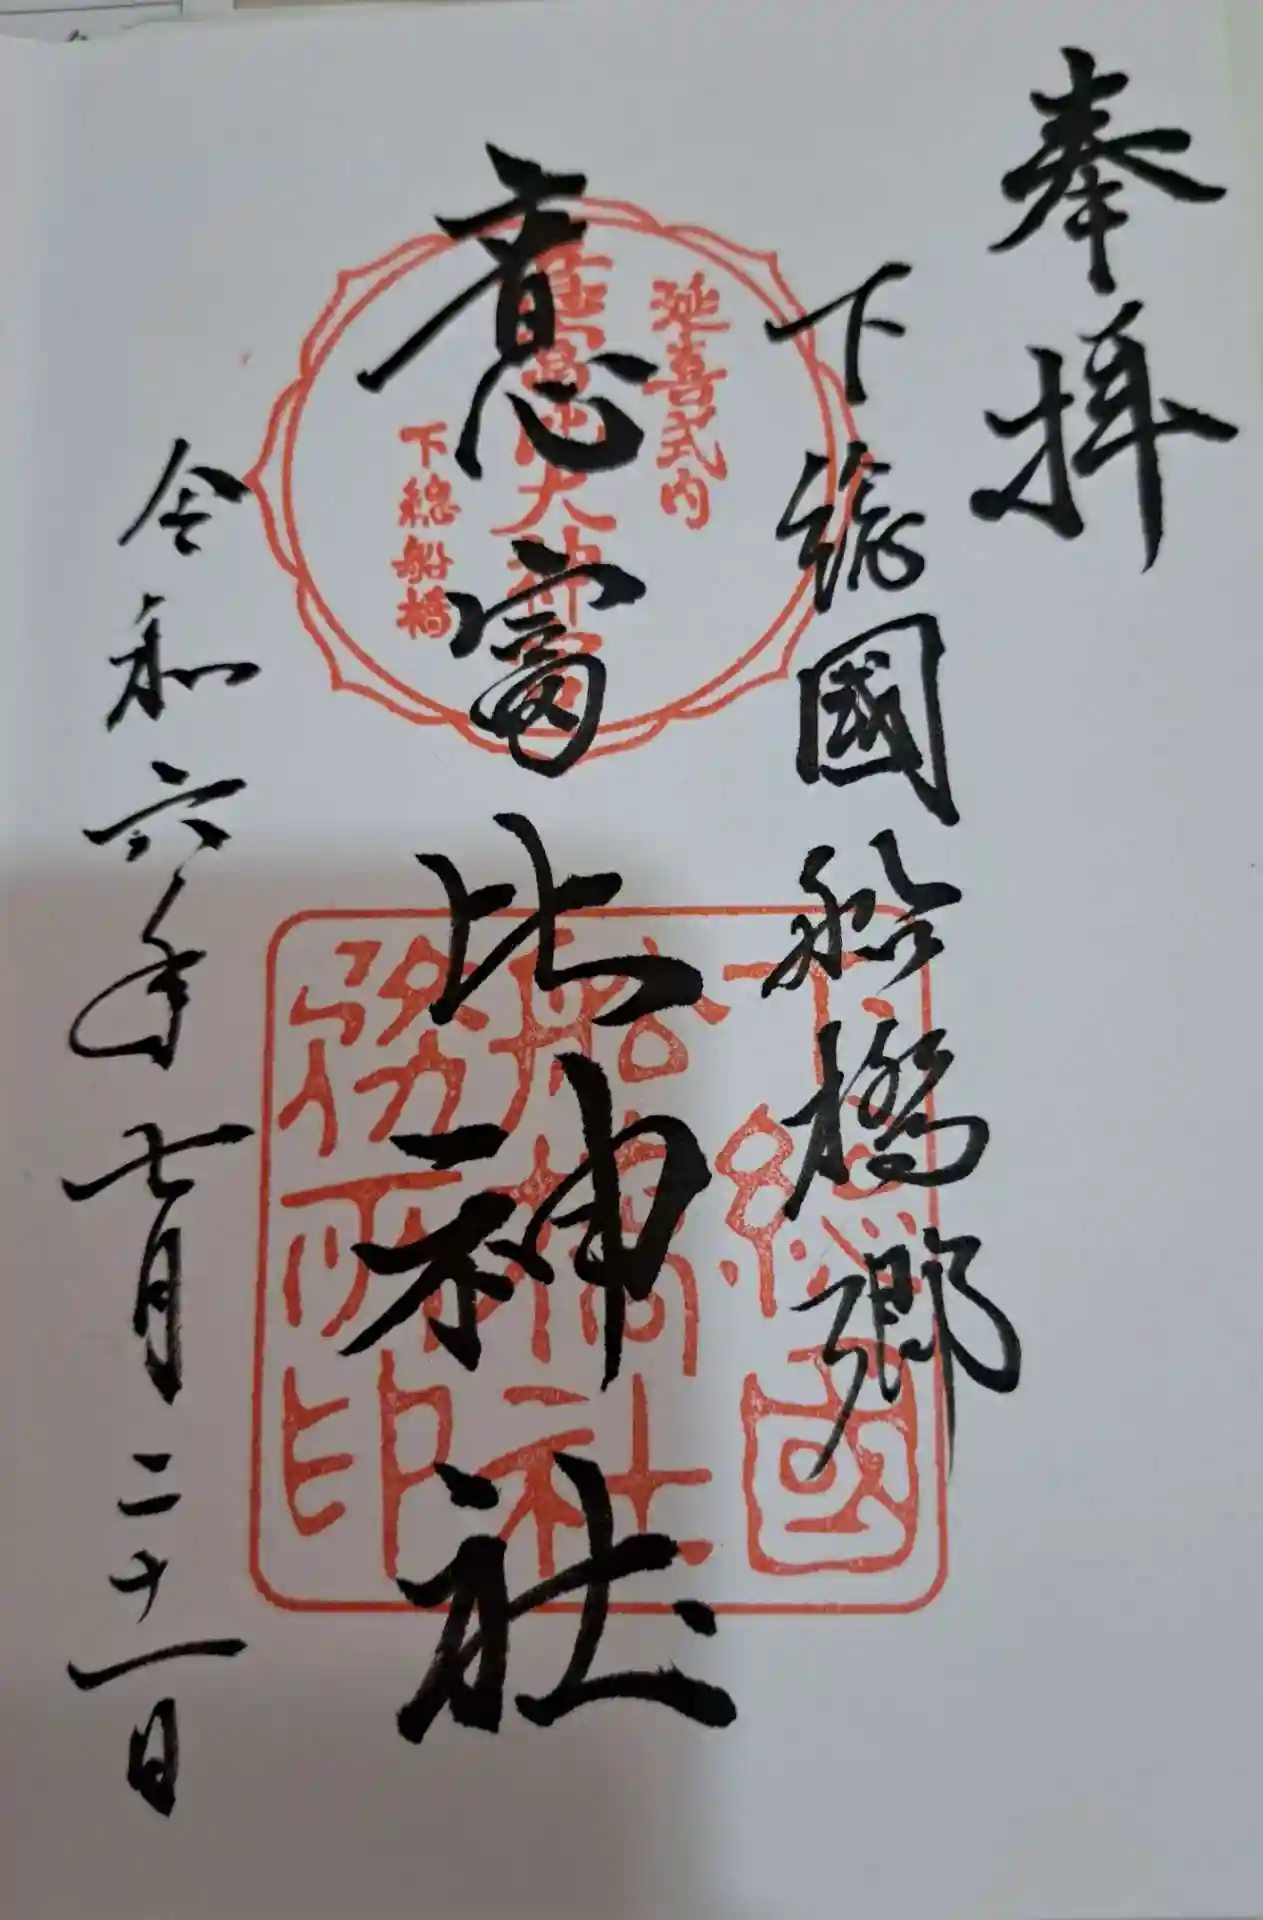 奉拝
下総國船橋郷
意富比神社
令和六年七月二十一日
延喜式内
意富比大神宮
下総船橋
下総國
船橋社
務所印